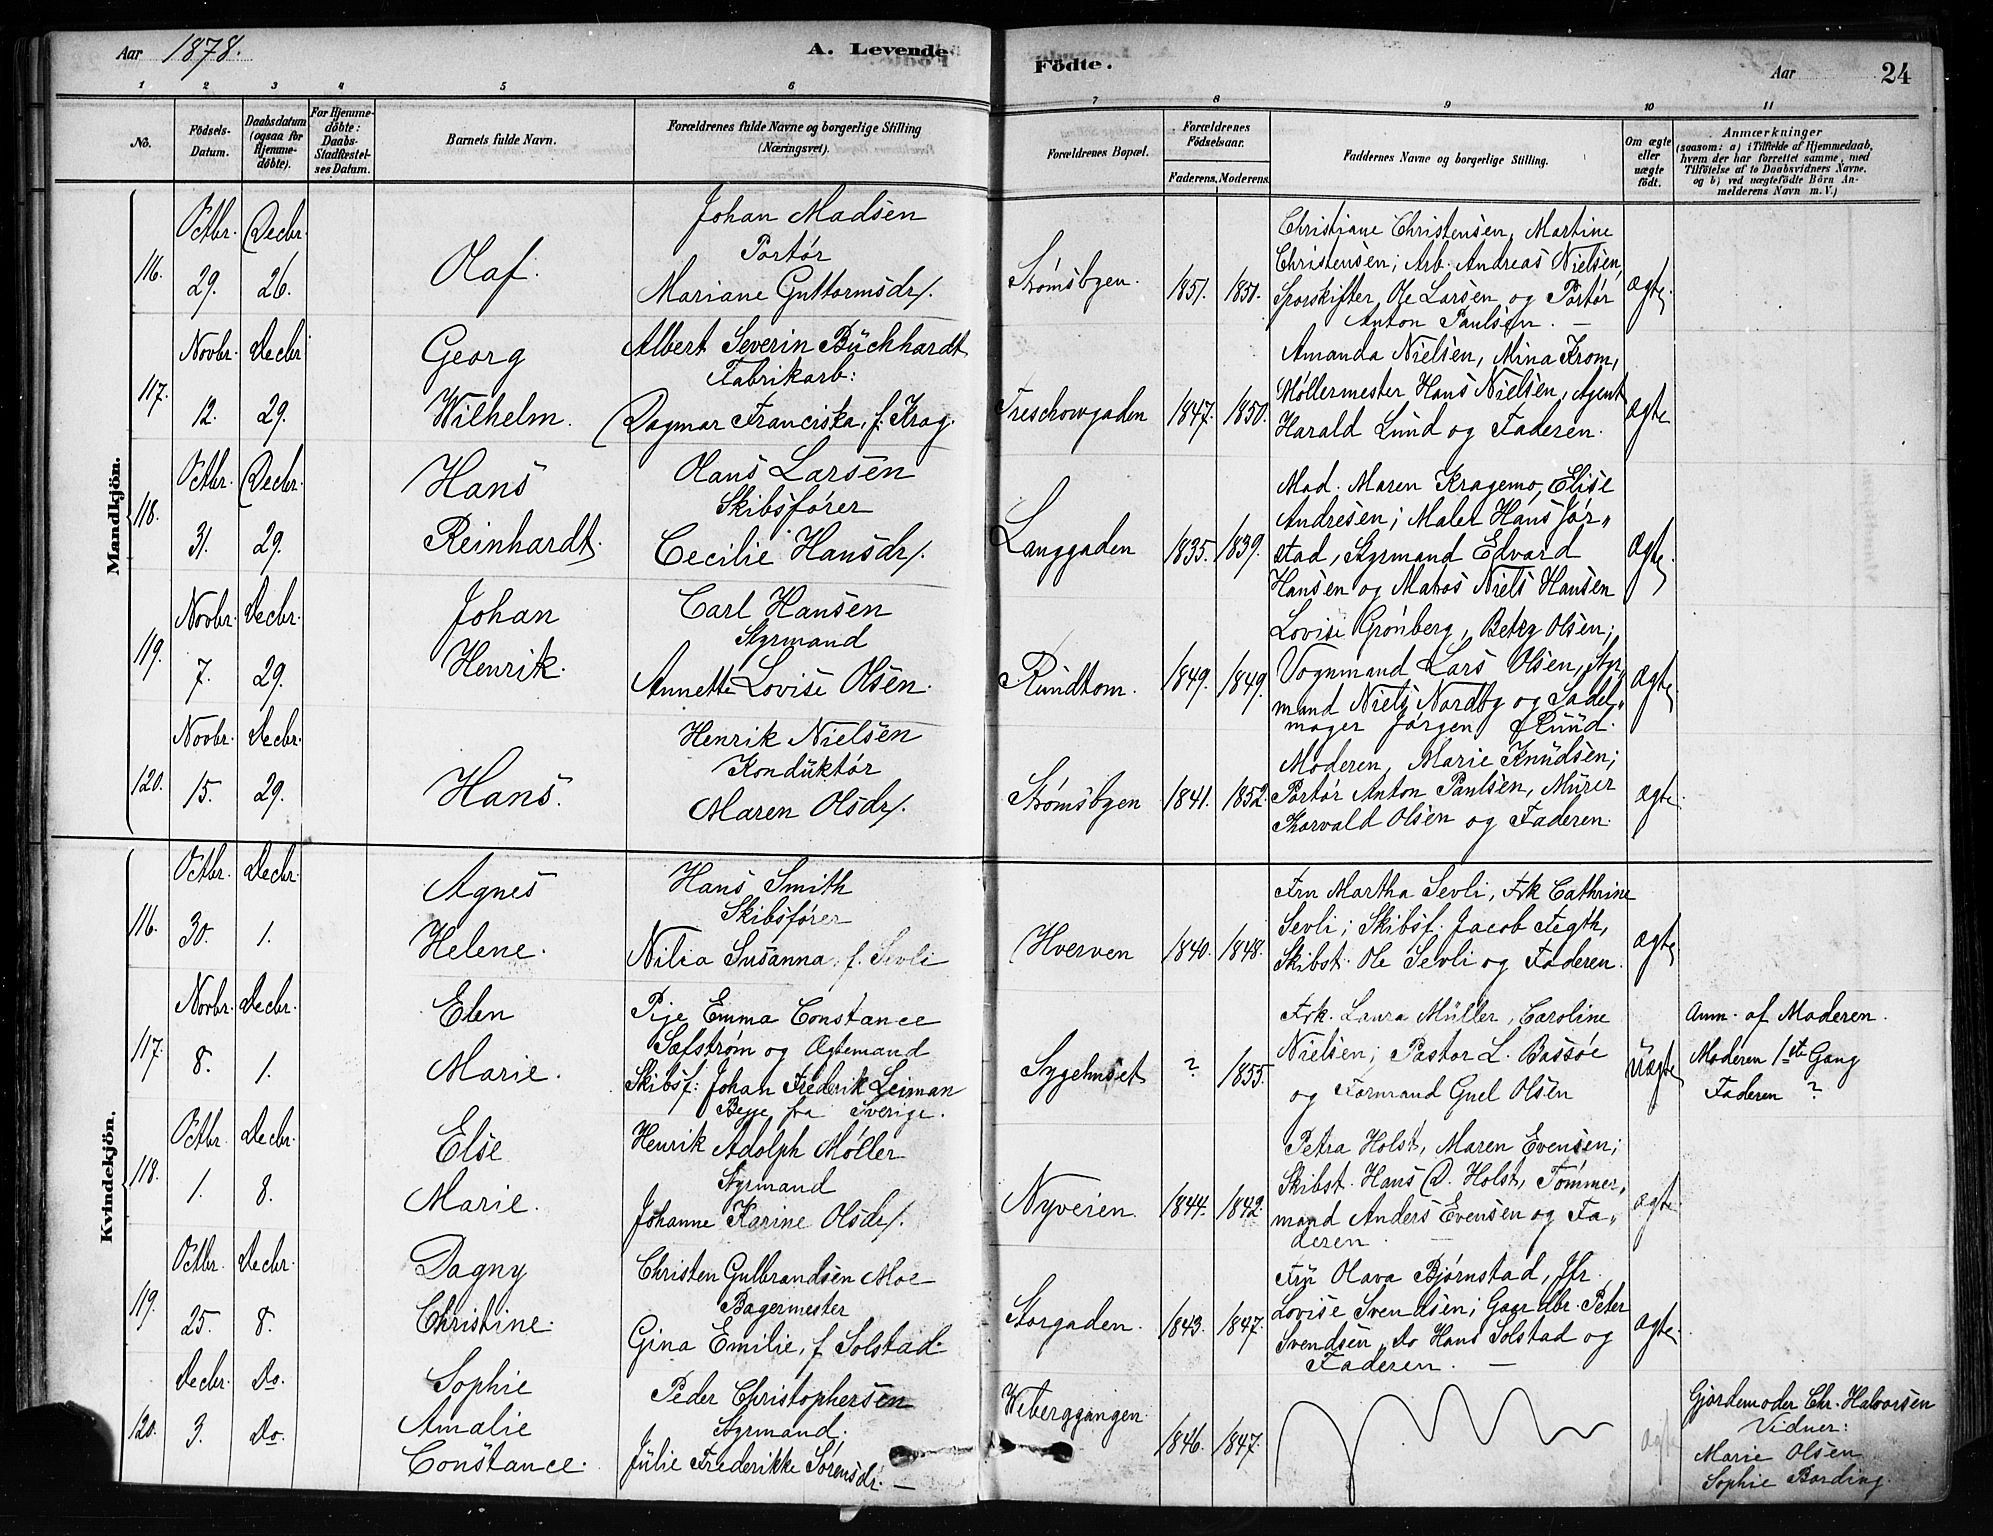 Aar 1878.
A. Levende
Födte.
Aar
24
1 2 3 4 5 6 7 8 9 10 11
No.
Födsels-Datum.
Daabsdatum (ogsaa for Hjemme-döbte).
For Hjemme-döbte: Daabs-Stadfæstel-ses Datum.
Barnets fulde Navn.
Forældrenes fulde Navne og borgerlige Stilling (Næringsvei).
Forældrenes Bopæl.
Forældrenes Födselsaar.
Faderens. Moderens.
Faddernes Navne og borgerlige Stilling.
Om ægte eller uægte födt.
Anmærkninger
(saasom: a) i Tilfælde af Hjemmedaab,
hvem der har forrettet samme, med
Tilföielse af to Daabsvidners Navne,
og b) ved uægtefödte Börn An-
melderens Navn m.V.)
Mandkjön.
116.
Octbr. 29.
Decbr. 26.
Olaf.
Johan Madsen
Portør
Mariane Guttormsdr.
Strømsbyen.
1851. 1851.
Christiane Christensen, Martine
Christensen; Arb. Andreas Nielsen,
Sporskifter Ole Larsen og Portør
Anton Paulsen. —
Ægte.
117.
Novbr. 12.
Decbr. 29.
Georg
Wilhelm.
Albert Severin Büchhardt
Fabrikarb:
Dagmar Franciska, f. Krag.
Treschowgaden
1847. 1850.
Amanda Nielsen, Mina Krom,
Møllermester Hans Nielsen, Agent
Harald Lund og Faderen.
Ægte
118.
Octbr. 31.
Decbr. 29.
Hans
Reinhardt.
Hans Larsen
Skibsfører
Cecilie Hansdr.
Langgaden
1835. 1839.
Mad. Maren Kragemo, Elise
Andresen; Maler Hans Jør„
stad, Styrmand Edvard
Hansen og Matros Niels Hansen
Ægte.
119.
Novbr. 7.
Decbr. 29.
Johan
Henrik.
Carl Hansen
Styrmand
Annette Lovise Olsen.
Rundtom.
1849. 1849.
Lovise Grønberg, Betzy Olsen;
Vognmand Lars Olsen, Styr„
mand Niels Nordby og Sadel„
mager Jørgen Ruud.
Ægte
120.
Novbr. 15.
Decbr. 29.
Hans.
Henrik Nielsen
Konduktør
Maren Olsdr.
Strømsbyen
1841. 1852.
Moderen, Marie Knudsen;
Portør Anton Paulsen, Murer
Thorvald Olsen og Faderen.
Ægte.
Kvindekjön.
116.
Octbr. 30.
Decbr. 1.
Agnes
Helene.
Hans Smith
Skibsfører
Nilia Susanna, f. Sevli
Hverven
1840. 1848.
Fru Martha Sevli, Frk Cathrine
Sevli; Skibsf. Jacob Fegth,
Skibst. Ole Sevli og Faderen.
Ægte
117.
Novbr. 8.
Decbr. 1.
Elen
Marie.
Pige Emma Constance
Säfstrøm og Ægtemand
Skibsf: Johan Frederik Leiman
Begge fra Sverige.
Sygehuset
? 1855.
Frk. Laura Müller, Caroline
Nielsen; Pastor L. Bassøe
og Formand Guel Olsen
Uægte
Anm. af Moderen.
Moderen 1ste Gang
Faderen ?
118.
Octbr. 1.
Decbr. 8.
Else
Marie.
Henrik Adolph Møller
Styrmand
Johanne Karine Olsdr.
Nyveien.
1844. 1842.
Petra Holst, Maren Evensen;
Skibst. Hans D. Holst, Tømmer„
mand Anders Evensen og Fa„
deren.
Ægte
119.
Octbr. 25.
Decbr. 8.
Dagny
Christine.
Christen Gulbrandsen Moe
Bagermester
Gina Emilie, f Solstad.
Storgaden.
1843. 1847.
Fru Olava Bjørnstad, Jfr.
Lovise Svendsen; Gaardbr. Peter
Svendsen, Do Hans Solstad og
Faderen. —
Ægte.
120.
Decbr. 3.
Do. Do.
Sophie
Amalie
Constance.
Peder Christophersen
Styrmand.
Julie Frederikke Sørensdr. —
Weberggangen
1846. 1847.
Ægte
Gjordemoder Chr. Halvorsen
Vidner:
Marie Olsen
Sophie Bording.